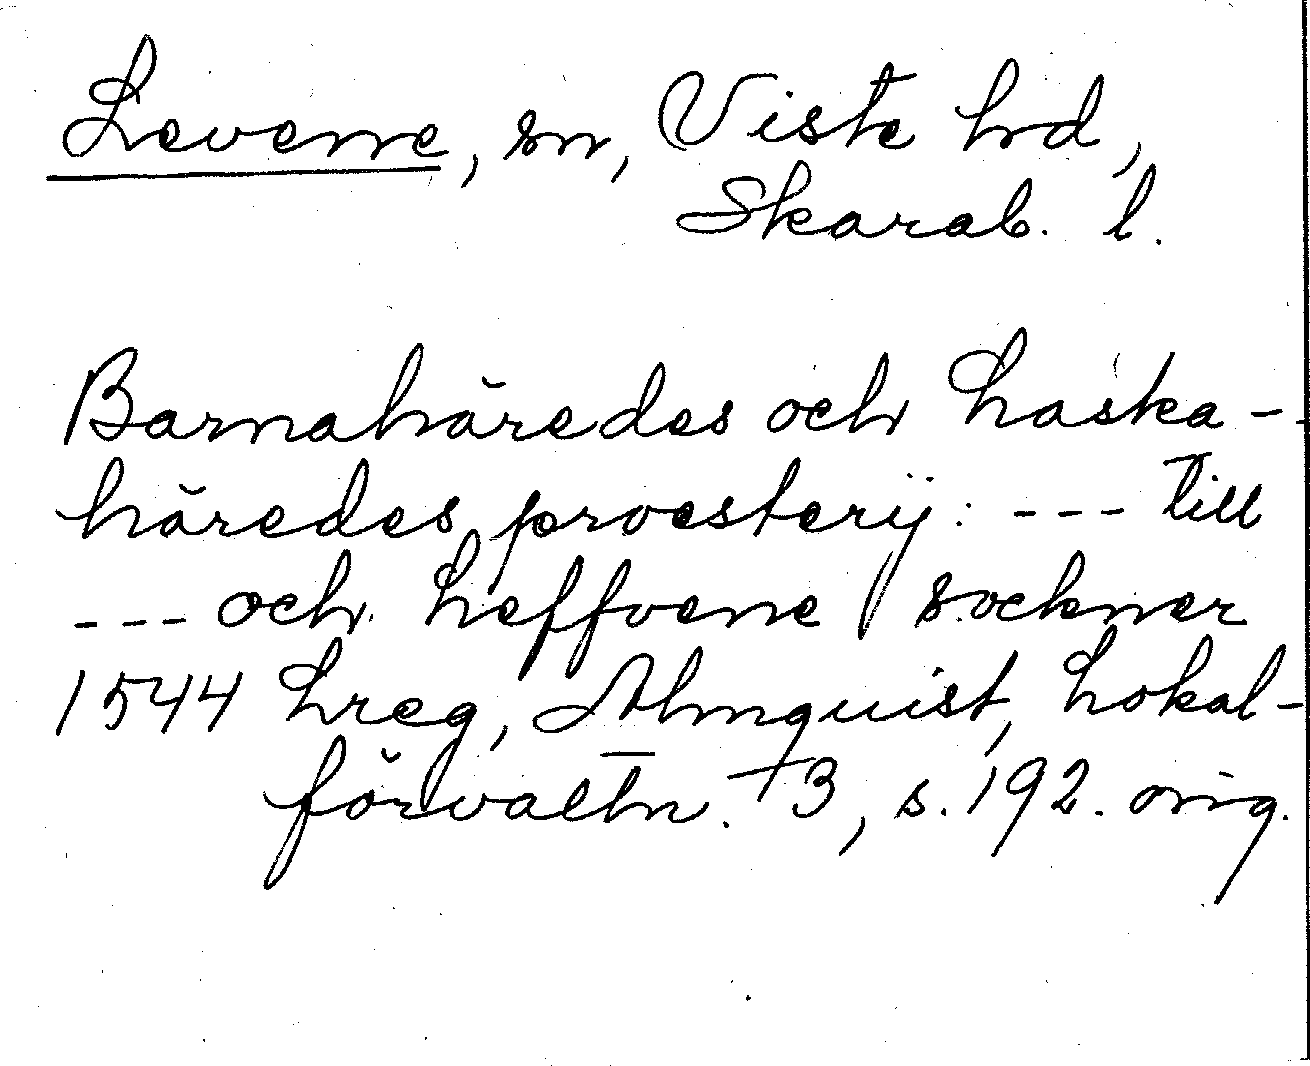 Levene, sn, Viste hd,
Skarab. l.
Barnahäredes och Laska-
häredes proesterij: --- till
--- och Leffvene sockner
1544 Lreg, Almquist, Lokal-
förvaltn. 3, s. 192. orig.